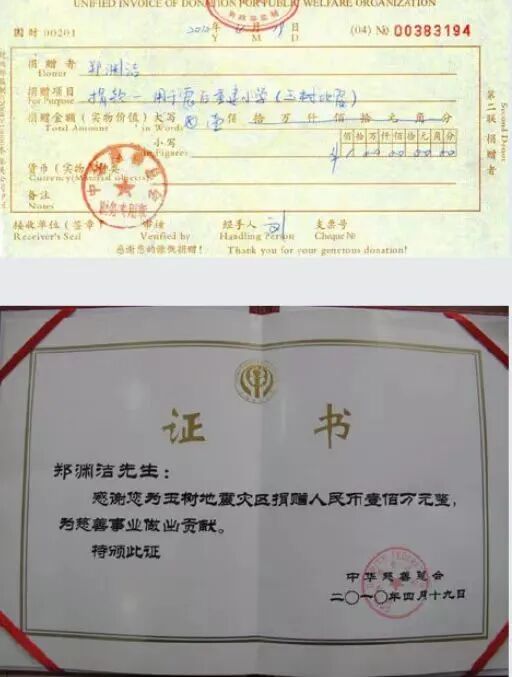 UNIFIED INVOICE OF DONATION FOR PUBLIC WELFARE ORGANIZATION
国财 00201
2010 年 4 月 19 日
(04) № 00383194
Y M D
捐赠者 郑渊洁
Donor
捐赠项目 捐款—用于震后重建小学（玉树地震）
For Purpose
捐赠金额（实物价值）大写 壹 佰 拾 万 仟 佰 拾 元 角 分
Total Amount in Words
佰 拾 万 仟 佰 拾 元 角 分
小写
in Figures
¥ 1 0 0 0 0 0 0 0 0
货币（实物）种类
Currency(Material objects)
备注
Notes
第二联：捐赠者
Second: Donor
接收单位（签章） 审核 经手人 刘 支票号
Receiver's Seal Verified by Handling Person Cheque №
感谢您的慷慨捐赠！ Thank you for your generous donation!
财务专用章
证 书
郑渊洁先生：
感谢您为玉树地震灾区捐赠人民币壹佰万元整，
为慈善事业做出贡献。
特颁此证
中华慈善总会
二〇一〇年四月十九日